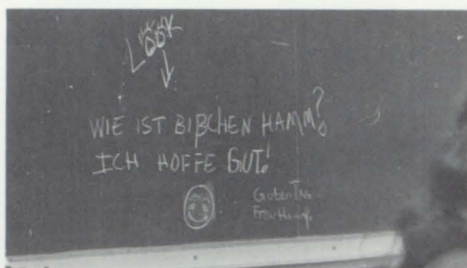 LOOK
WIE IST BIßCHEN HAMM?
ICH HOFFE GUT!
Guten Tag
Frau Hamm